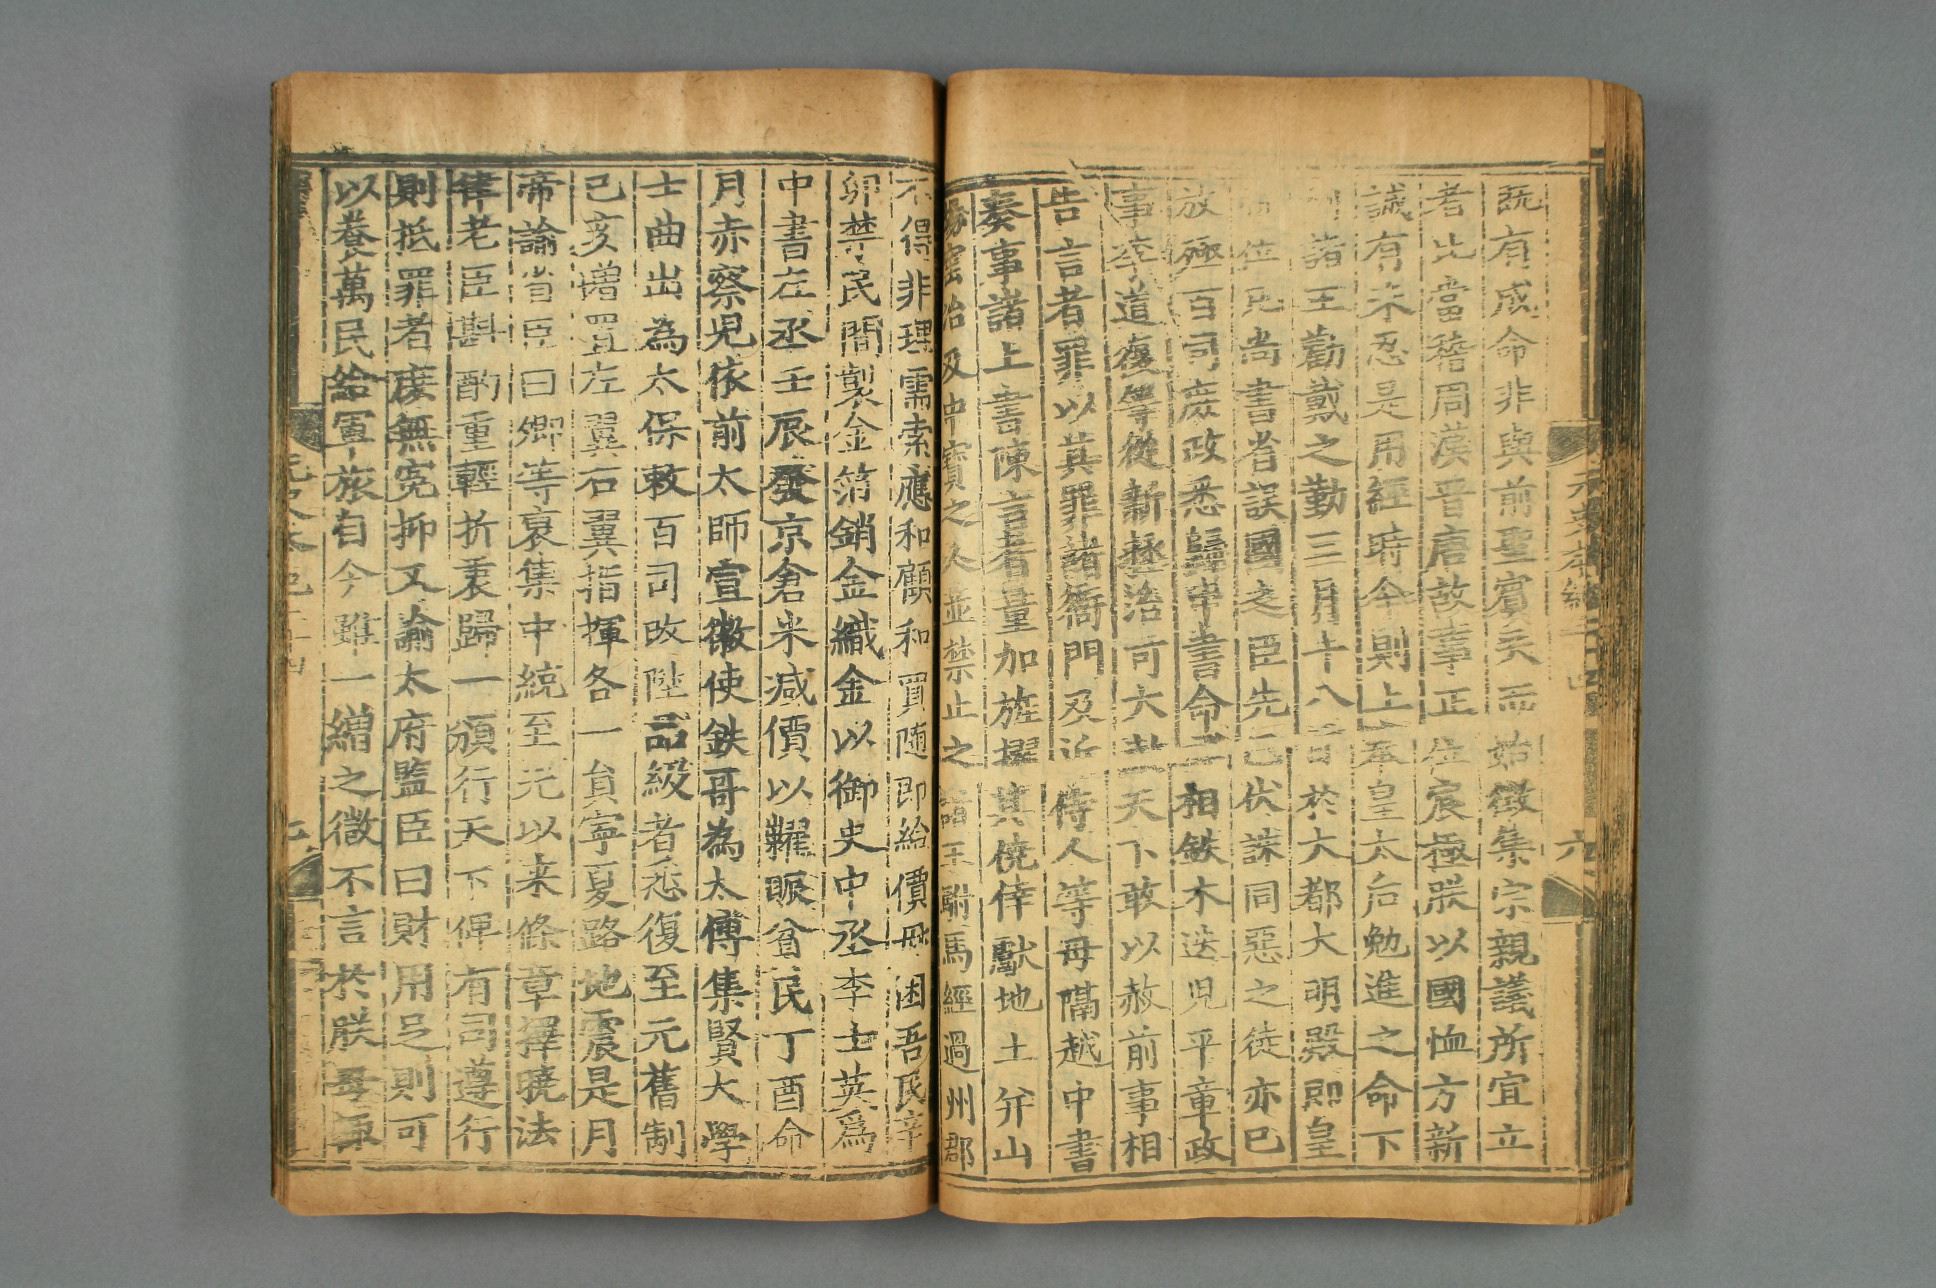 既有成命非與前聖賓天而始徵集宗親議所宜立
者比當稽周漢晉唐故事正位宸極朕以國恤方新
誠有未忍是用經時今則上奉皇太后勉進之命下
諸王勸戴之勤三月十八日於大都大明殿即皇
位尚書省誤國之臣先已伏誅同惡之徒亦已
放殛百司庶政悉歸中書命丞相鉄木迭兒平章政
事李道復等從新拯治可大赦天下敢以赦前事相
告言者罪以其罪諸衙門及近侍人等毋隔越中書
奏事諸上書陳言者量加旌擢其僥倖獻地土并山
場窑冶及中寶之人並禁止之諸王駙馬經過州郡
不得非理需索應和顧和買隨即給價毋困吾民辛
卯禁民間製金箔銷金織金以御史中丞李士英爲
中書左丞壬辰發京倉米減價以糶賑貧民丁酉命
月赤察兒依前太師宣徽使鉄哥為太傅集賢大學
士曲出為太保敕百司改陞品級者悉復至元舊制
己亥增置左翼右翼指揮各一員寧夏路地震是月
帝諭省臣曰卿等裒集中統至元以来條章擇曉法
律老臣斟酌重輕折衷歸一頒行天下俾有司遵行
則抵罪者庶無冤抑又諭太府監臣曰財用足則可
以養萬民給軍旅自今雖一繒之微不言於朕毋輒
元史卷